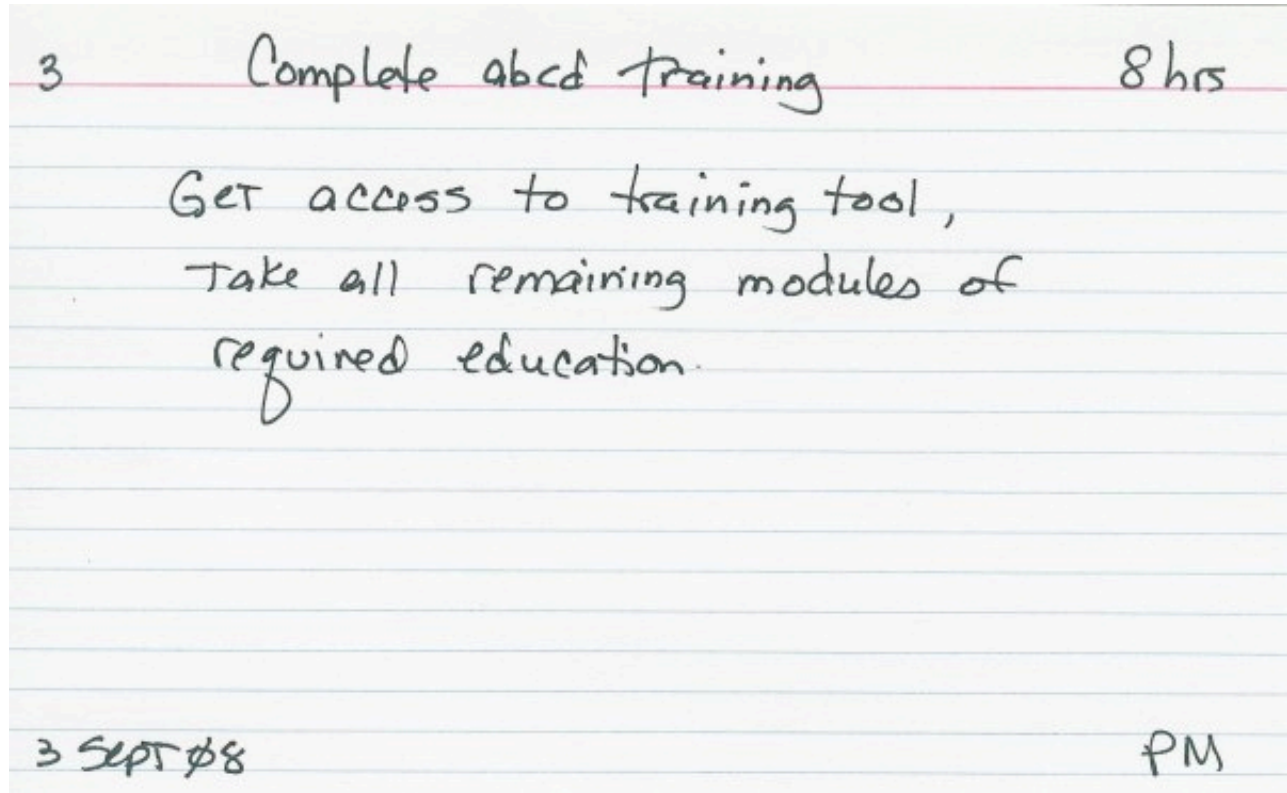 3 Complete abcd training 8 hrs
Get access to training tool,
Take all remaining modules of
required education.
3 Sept 08 PM